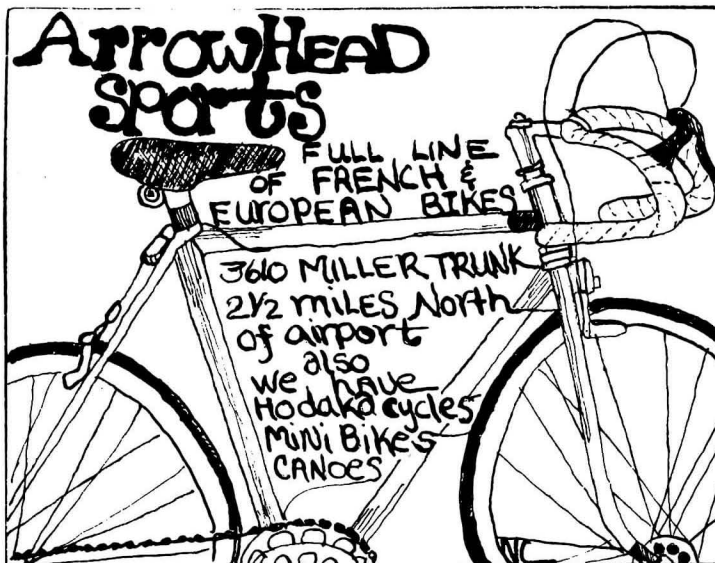 ArrowHEAD
sports
FULL LINE
OF FRENCH &
EUROPEAN BIKES
3610 MILLER TRUNK
2 1/2 miles North
of airport
also
we have
Hodaka cycles
MiNi BikEs
CANOES